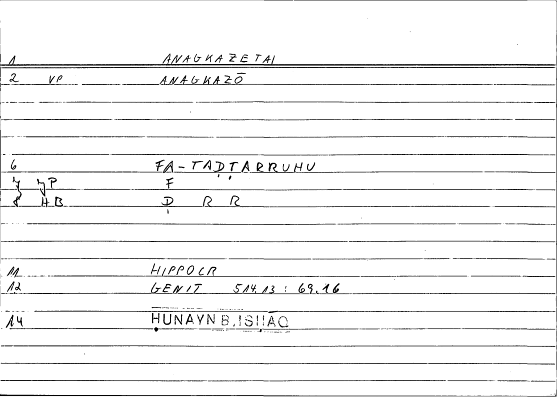 1 ANAGKAZETAI
2 VP ANAGKAZŌ
6 FA-TAḌṬARRUHU
7 JP F
8 HB Ḍ R R
11 HIPPOCR
12 GENIT 514.13 : 69.16
14 ḤUNAYN B. ISḤĀQ